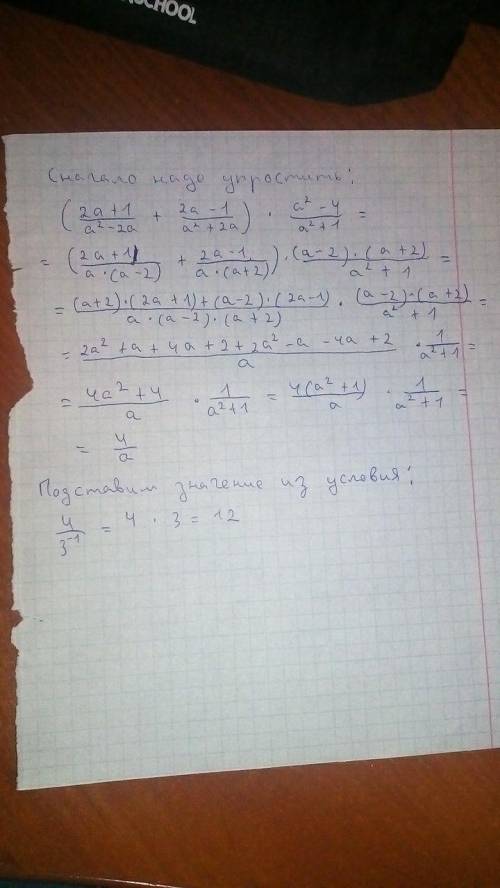 SCHOOL
Сначало надо упростить:
(2a+1/a²-2a + 2a-1/a²+2a) · a²-4/a²+1 =
= (2a+1/a·(a-2) + 2a-1/a·(a+2)) · (a-2)·(a+2)/a²+1 =
= (a+2)·(2a+1)+(a-2)·(2a-1)/a·(a-2)·(a+2) · (a-2)·(a+2)/a²+1 =
= 2a²+a+4a+2+2a²-a-4a+2/a · 1/a²+1 =
= 4a²+4/a · 1/a²+1 = 4(a²+1)/a · 1/a²+1 =
= 4/a
Подставим значение из условия:
4/3⁻¹ = 4 · 3 = 12